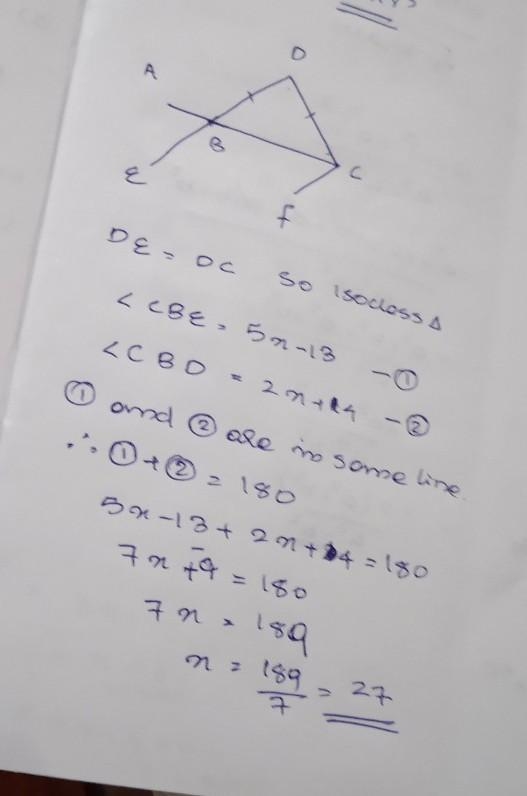 D
A
B
C
E
F
DE = DC so Isocless Δ
< CBE = 5x-13 - ①
< CBD = 2x+4 - ②
① and ② are in same line.
∴ ① + ② = 180
5x-13 + 2x+4 = 180
7x - 9 = 180
7x = 189
x = 189/7 = 27